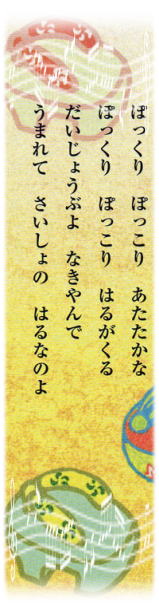 ぽっくり　ぽっこり　あたたかな
ぽっくり　ぽっこり　はるがくる
だいじょうぶよ　なきやんで
うまれて　さいしょの　はるなのよ